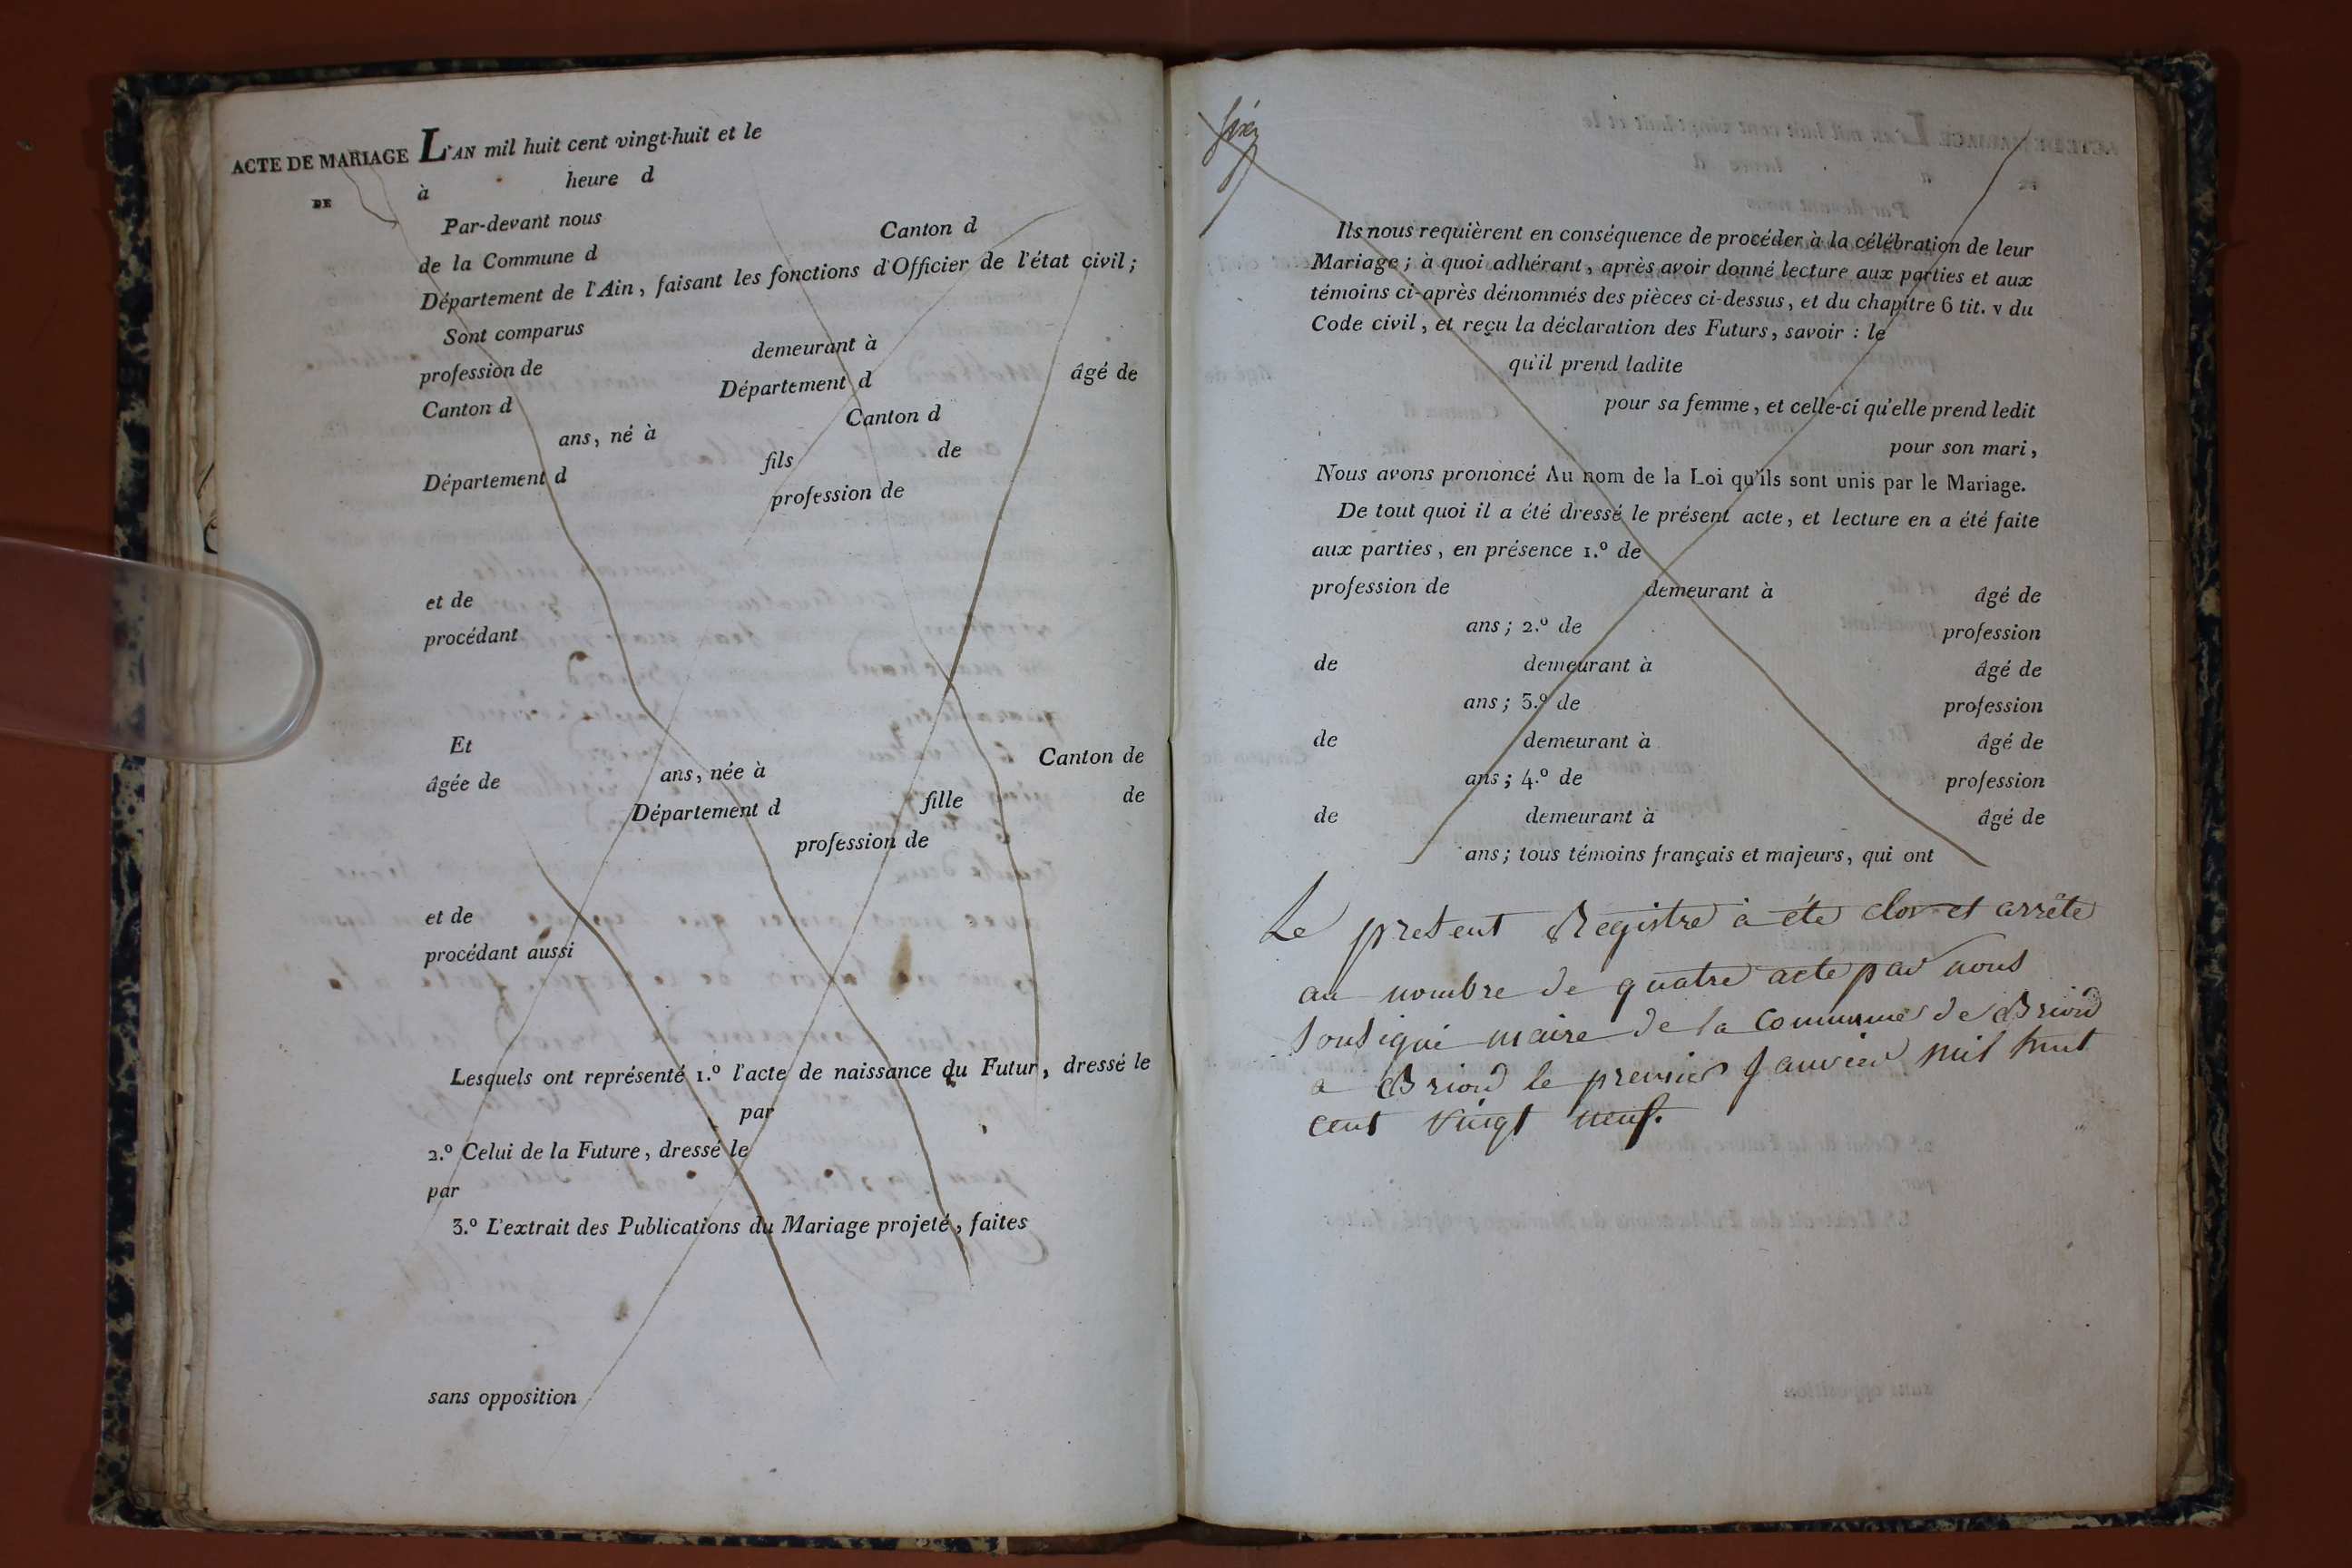 ACTE DE MARIAGE L'AN mil huit cent vingt-huit et le
DE à heure d
Par-devant nous
de la Commune d Canton d
Département de l'Ain, faisant les fonctions d'Officier de l'état civil;
Sont comparus
profession de demeurant à
Canton d Département d âgé de
ans, né à Canton d
Département d fils de
profession de
et de
procédant
Et
âgée de ans, née à Canton de
Département d fille de
profession de
et de
procédant aussi
Lesquels ont représenté 1.º l'acte de naissance du Futur, dressé le
par
2.º Celui de la Future, dressé le
par
3.º L'extrait des Publications du Mariage projeté, faites
sans opposition
Ils nous requièrent en conséquence de procéder à la célébration de leur
Mariage; à quoi adhérant, après avoir donné lecture aux parties et aux
témoins ci-après dénommés des pièces ci-dessus, et du chapitre 6 tit. v du
Code civil, et reçu la déclaration des Futurs, savoir : le
qu'il prend ladite
pour sa femme, et celle-ci qu'elle prend ledit
pour son mari,
Nous avons prononcé Au nom de la Loi qu'ils sont unis par le Mariage.
De tout quoi il a été dressé le présent acte, et lecture en a été faite
aux parties, en présence 1.º de
profession de demeurant à âgé de
ans; 2.º de profession
de demeurant à âgé de
ans; 3.º de profession
de demeurant à âgé de
ans; 4.º de profession
de demeurant à âgé de
ans; tous témoins français et majeurs, qui ont
Le present Registre à été clos et arrêté
au nombre de quatre acte par nous
sousigné maire de la Commune de Briord
a Briord le premier Janvier mil huit
cent vingt neuf.